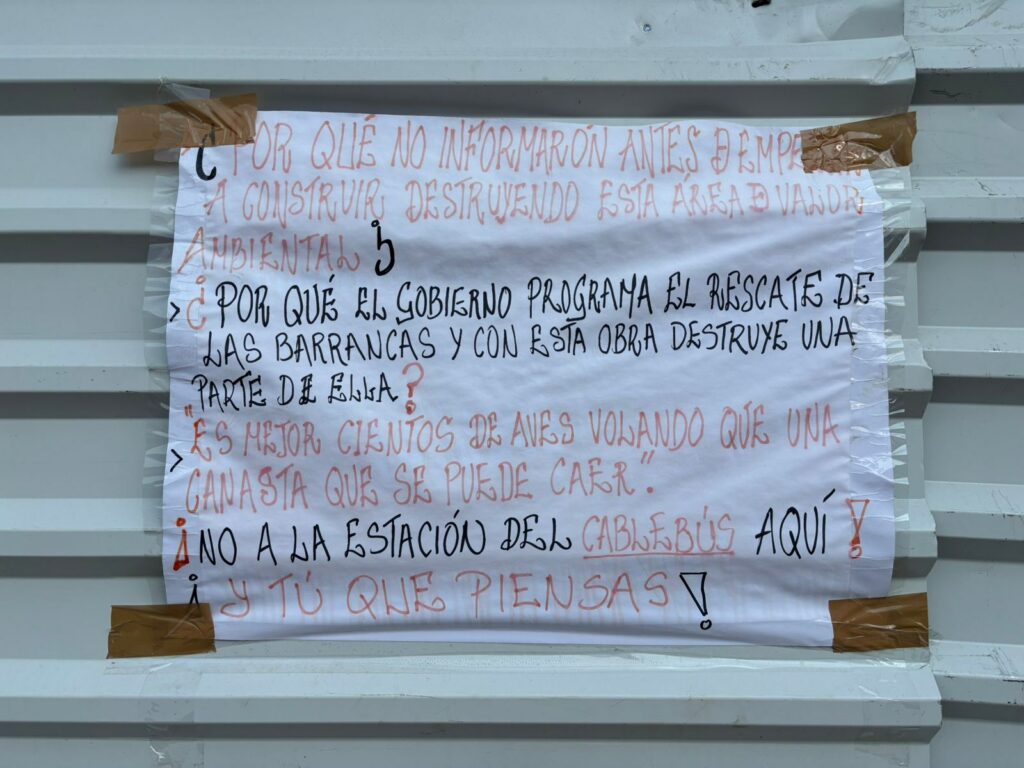 ¿ POR QUÉ NO INFORMARÓN ANTES D
A CONSTRUIR DESTRUYENDO ESTA AREA D VALOR
AMBIENTAL ?
> ¿ POR QUÉ EL GOBIERNO PROGRAMA EL RESCATE DE
LAS BARRANCAS Y CON ESTA OBRA DESTRUYE UNA
PARTE DE ELLA?
> "ES MEJOR CIENTOS DE AVES VOLANDO QUE UNA
CANASTA QUE SE PUEDE CAER".
¡NO A LA ESTACIÓN DEL CABLEBÚS AQUÍ!
¡ Y TÚ QUE PIENSAS!